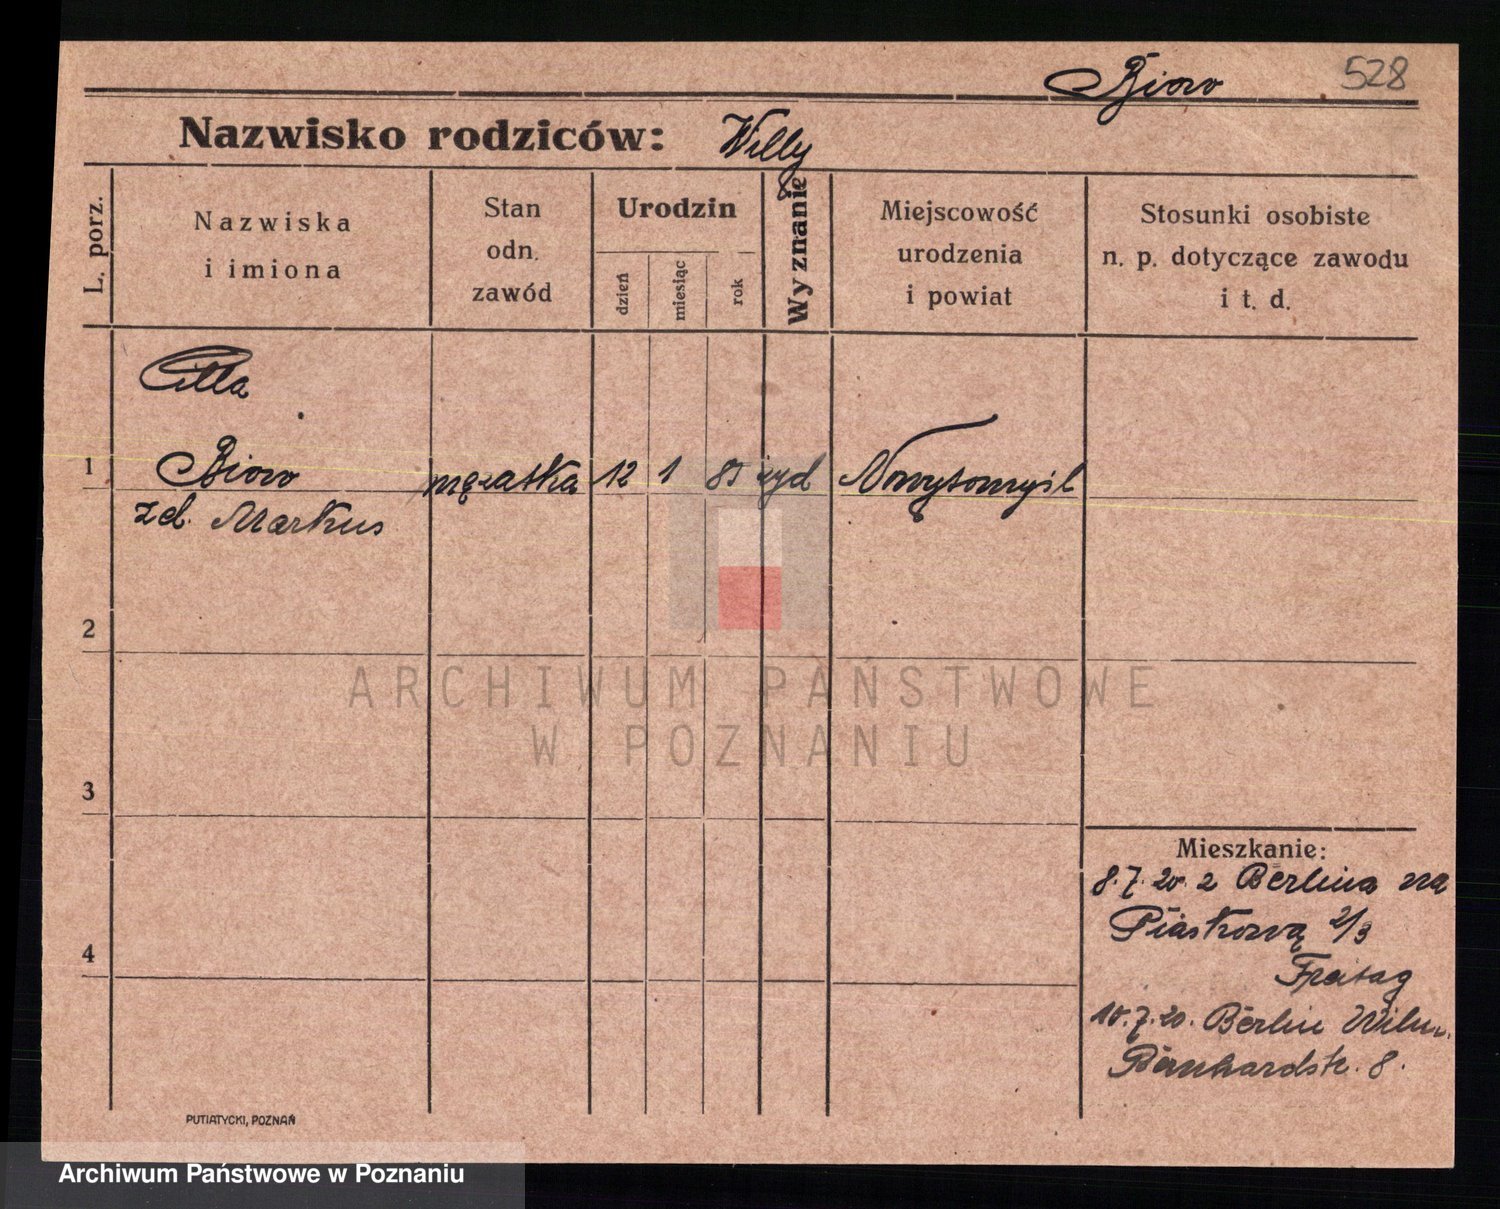 Biow 528
Nazwisko rodziców: Willy
L. porz.
Nazwiska
i imiona
Stan
odn.
zawód
Urodzin
dzień
miesiąc
rok
Wyznanie
Miejscowość
urodzenia
i powiat
Stosunki osobiste
n. p. dotyczące zawodu
i t. d.
Cilla
1 Biow mężatka 12 1 85 żyd Nowytomyśl
zd. Markus
2
ARCHIWUM PAŃSTWOWE
W POZNANIU
3
Mieszkanie:
8.7.20. z Berlina na
Piaskową 2/3
4
Freitag
10.7.20. Berlin Wilm.
Bernhardstr. 8.
PUTIATYCKI, POZNAŃ
Archiwum Państwowe w Poznaniu